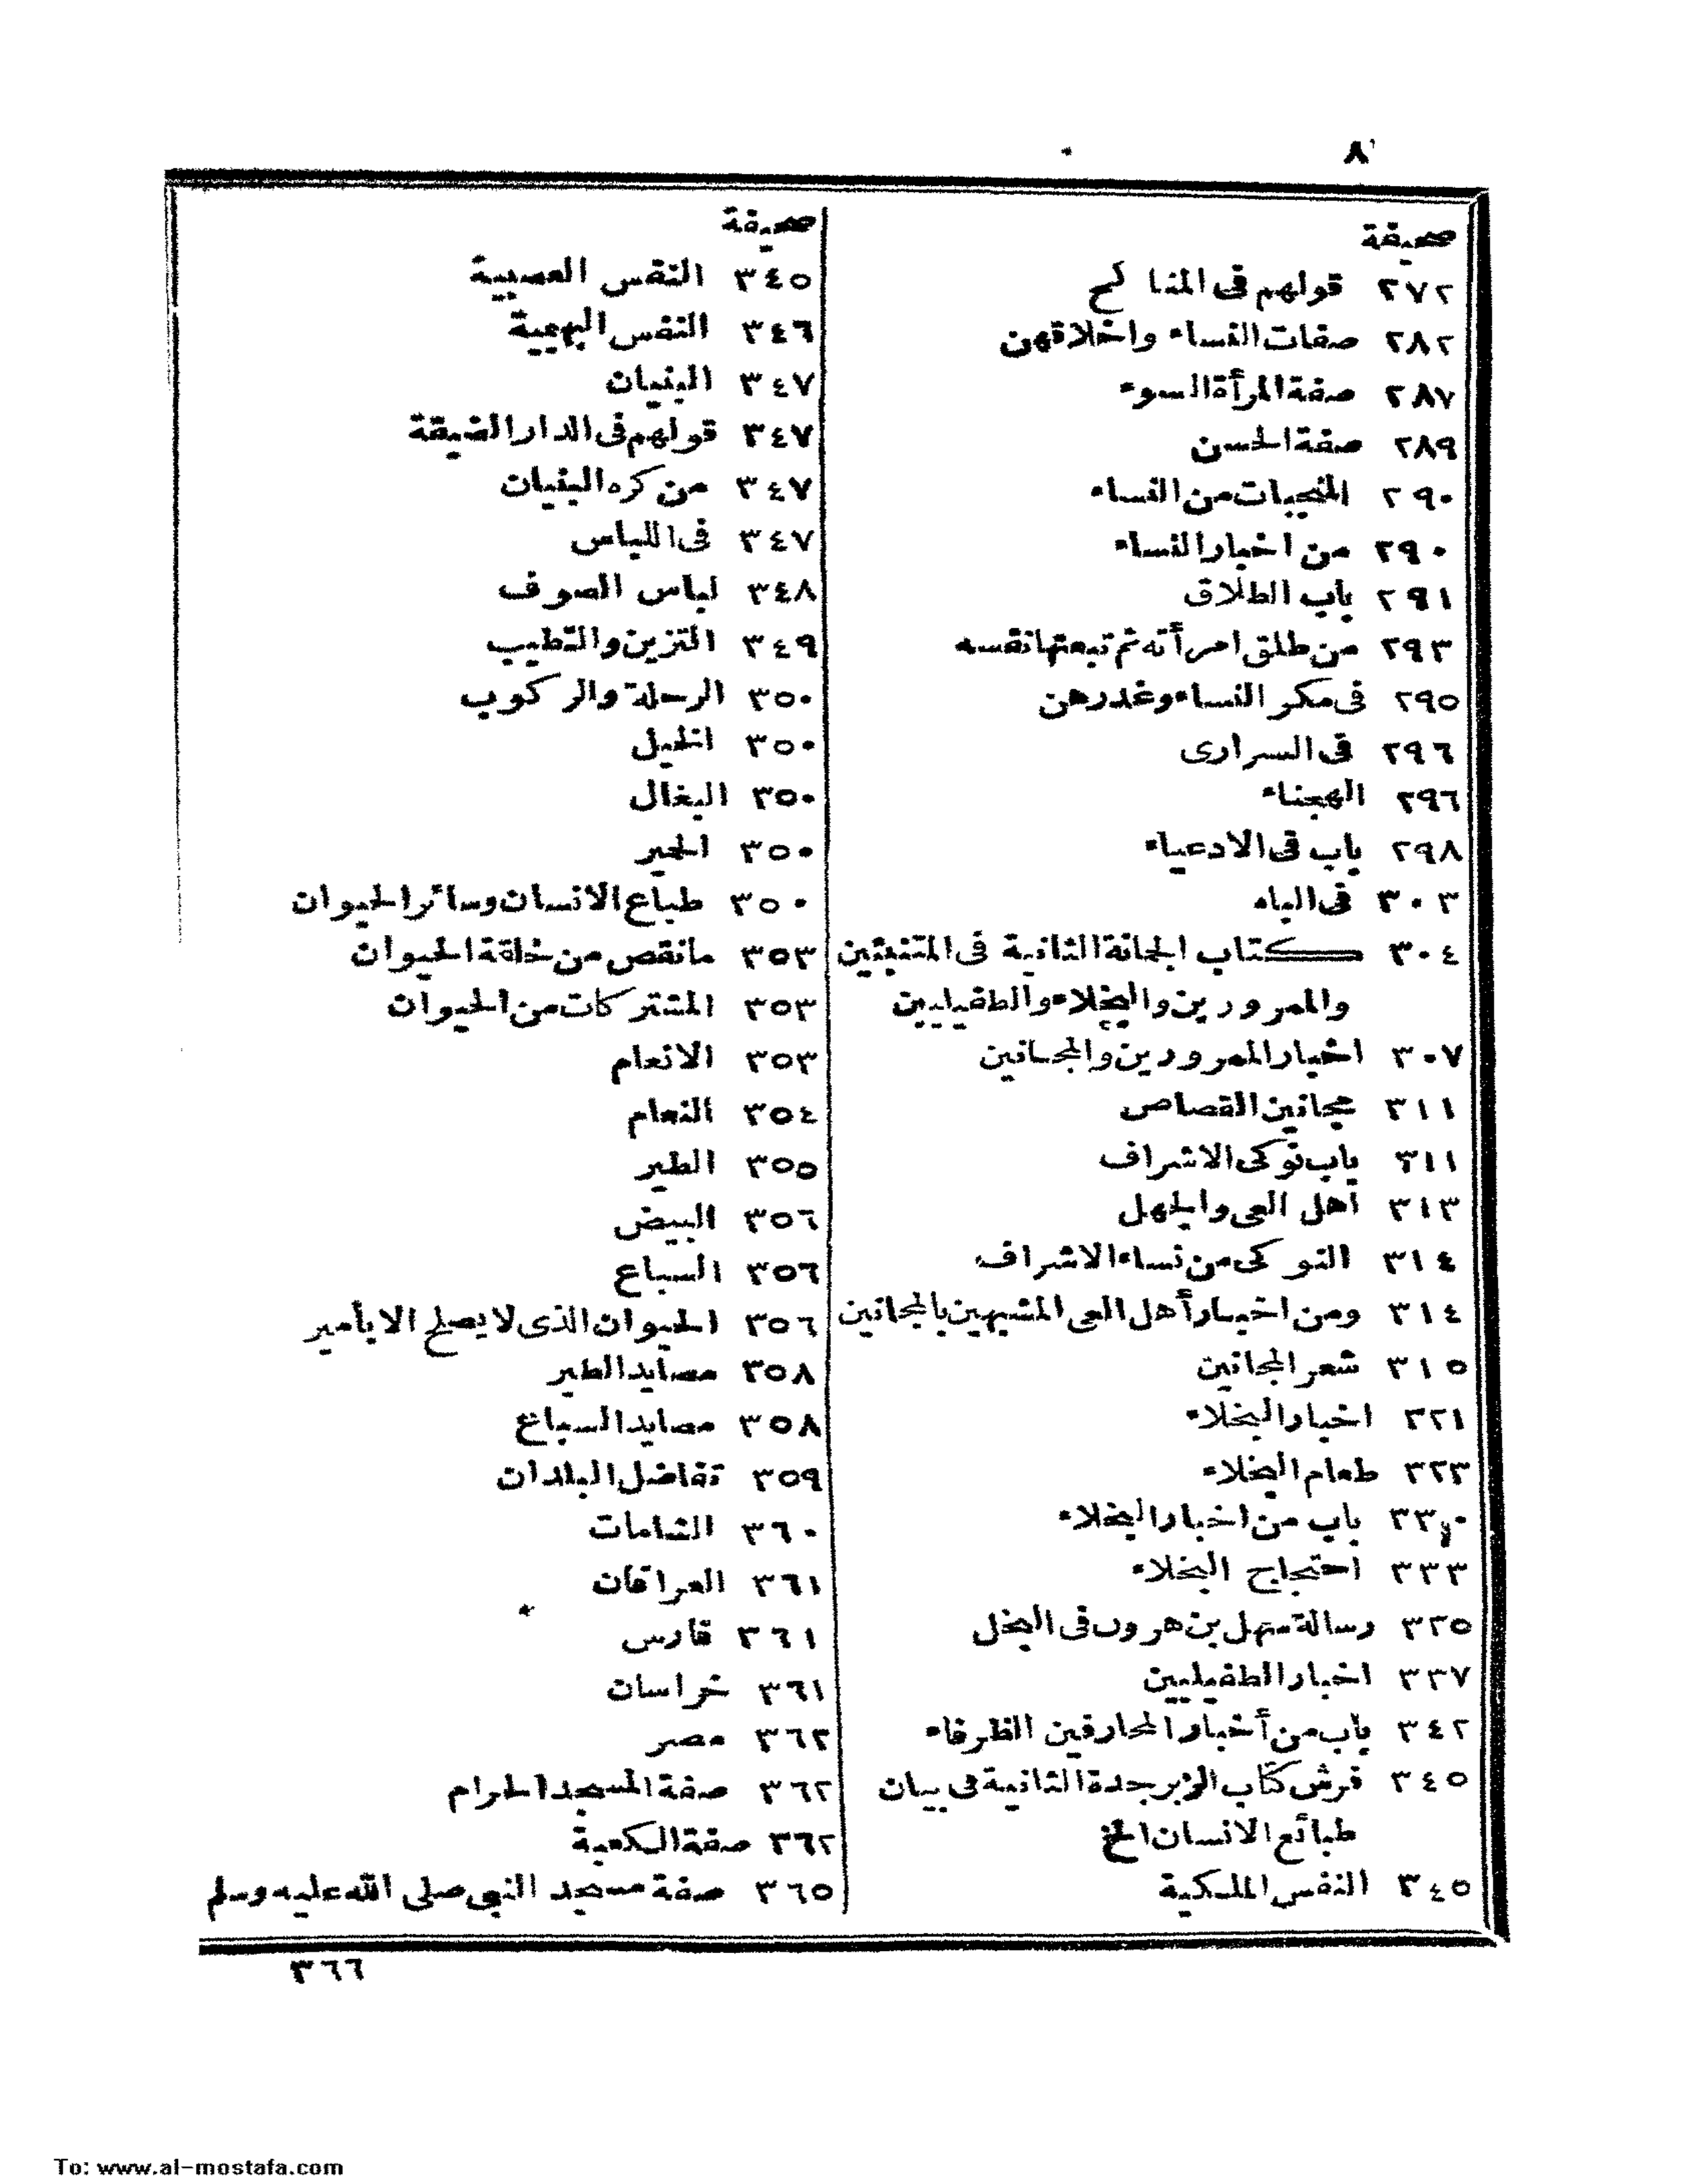 ٨
صحيفة
٢٧٢ قولهم فى المناكح
٢٨٢ صفات النساء واخلاقهن
٢٨٧ صفة المرأة السوء
٢٨٩ صفة الحسن
٢٩٠ المنجبات من النساء
٢٩٠ من اخبار النساء
٢٩١ باب الطلاق
٢٩٣ من طلق امرأته ثم تبعتها نفسه
٢٩٥ فى مكر النساء وغدرهن
٢٩٦ فى السرارى
٢٩٦ الهجناء
٢٩٨ باب فى الادعياء
٣٠٣ فى الباه
٣٠٤ كتاب الجمانة الثانية فى المتنبئين
والممرورين والبخلاء والطفيليين
٣٠٧ اخبار الممرورين والمجانين
٣١١ مجانين القصاص
٣١١ باب نوكى الاشراف
٣١٣ أهل العى والجهل
٣١٤ النوكى من نساء الاشراف
٣١٤ ومن اخبار أهل العى المشبهين بالمجانين
٣١٥ شعر المجانين
٣٢١ اخبار البخلاء
٣٢٣ طعام البخلاء
٣٣٠ باب من اخبار البخلاء
٣٣٣ احتجاج البخلاء
٣٣٥ رسالة سهل بن هرون فى البخل
٣٣٧ اخبار الطفيليين
٣٤٢ باب من أخبار المحارفين الظرفاء
٣٤٥ فرش كتاب الزبرجدة الثانية فى بيان
طبائع الانسان الخ
٣٤٥ النفس الملكية
صحيفة
٣٤٥ النفس العصبية
٣٤٦ النفس البهيمية
٣٤٧ البنيان
٣٤٧ قولهم فى الدار الضيقة
٣٤٧ من كره البنيان
٣٤٧ فى اللباس
٣٤٨ لباس الصوف
٣٤٩ التزين والتطيب
٣٥٠ الرحلة والركوب
٣٥٠ الخيل
٣٥٠ البغال
٣٥٠ الحمير
٣٥٠ طباع الانسان وسائر الحيوان
٣٥٣ ما نقص من خلقة الحيوان
٣٥٣ المشتركات من الحيوان
٣٥٣ الانعام
٣٥٤ النعام
٣٥٥ الطير
٣٥٦ البيض
٣٥٦ السباع
٣٥٦ الحيوان الذى لا يصلح الا بأمير
٣٥٨ مصايد الطير
٣٥٨ مصايد السباع
٣٥٩ تفاضل البلدان
٣٦٠ الشامات
٣٦١ العراقان
٣٦١ فارس
٣٦١ خراسان
٣٦٢ مصر
٣٦٢ صفة المسجد الحرام
٣٦٢ صفة الكعبة
٣٦٥ صفة مسجد النبى صلى الله عليه وسلم
٣٦٦
To: www.al-mostafa.com